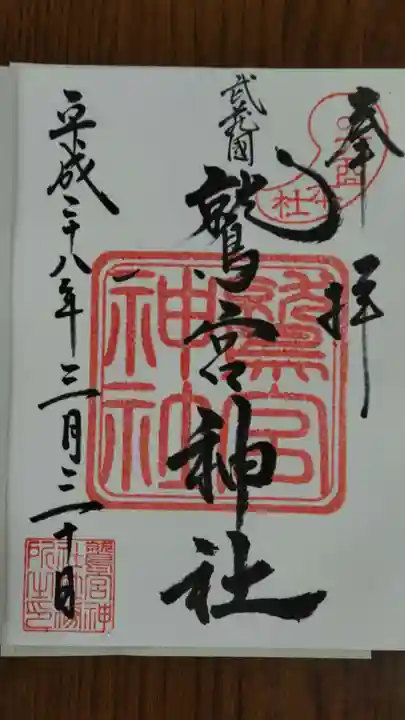 奉拝
武蔵國
鷲宮神社
平成二十八年三月三十日
鷲宮
神社
本社
鷲宮神
社
所之印